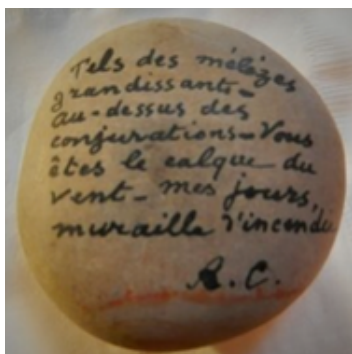 Tels des mélèzes
grandissants -
au-dessus des
conjurations - Vous
êtes le calque du
vent - mes jours,
muraille d'incendie
R. C.